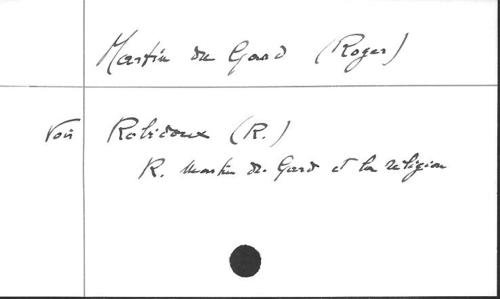 Martin du Gard (Roger)
Voir Robidoux (R.)
R. Martin du Gard et la religion